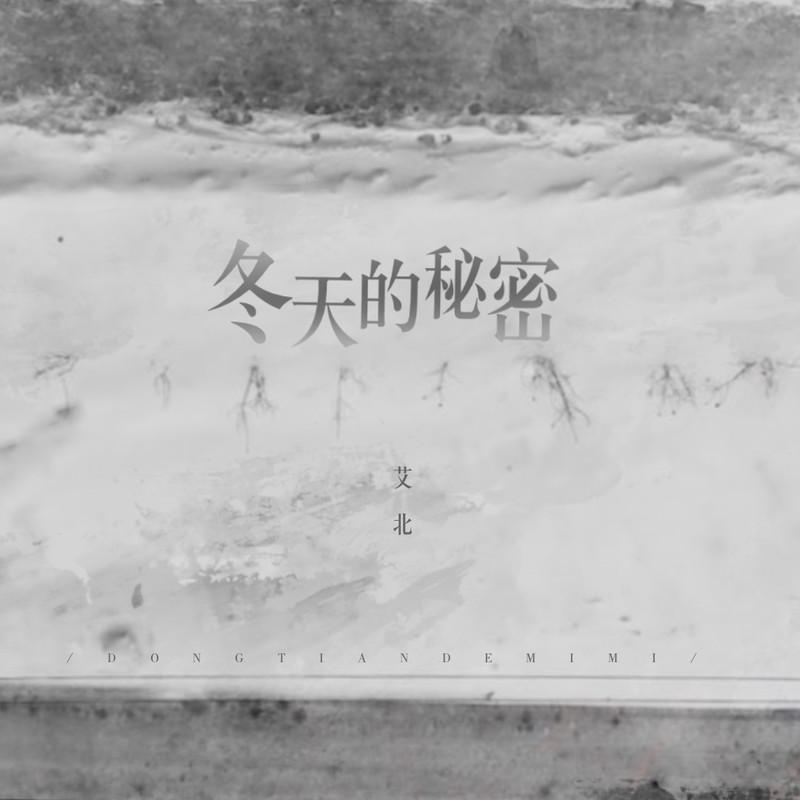 冬天的秘密
艾北
/ DONGTIANDEMIMI /